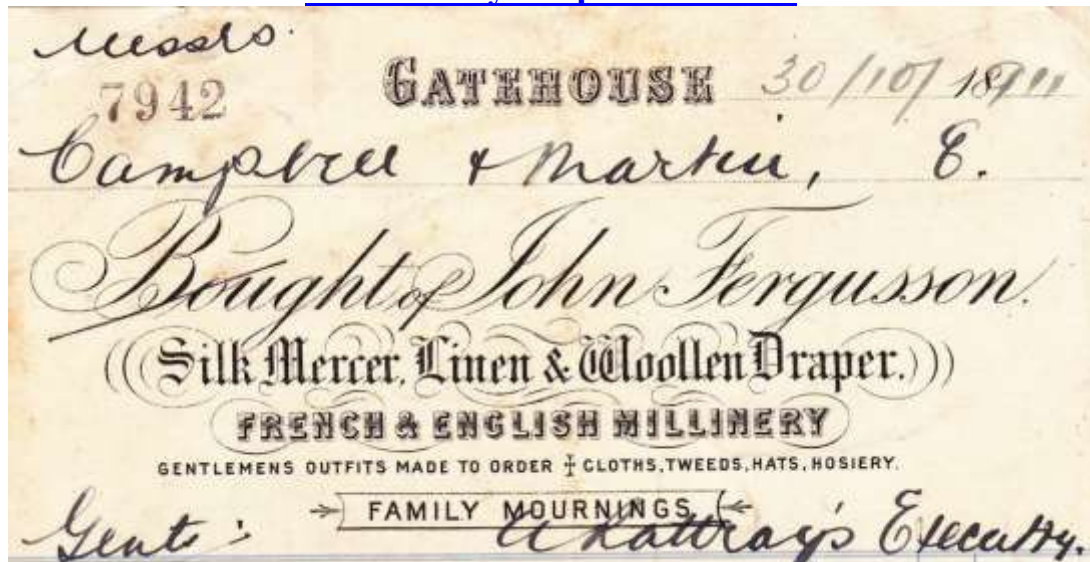 Messrs.
7942
GATEHOUSE 30/10/18
Campbell & Martin, E.
Bought of John Fergusson.
Silk Mercer, Linen & Woollen Draper.
FRENCH & ENGLISH MILLINERY
GENTLEMENS OUTFITS MADE TO ORDER CLOTHS, TWEEDS, HATS, HOSIERY.
FAMILY MOURNINGS
Gents: Rattray's Executry.